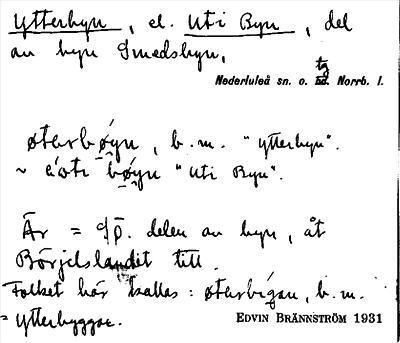 Ytterbyn, el. Uti Byn, del
av byn Smedsbyn,
Nederluleå sn. o. tg Norrb. l.
øtərbǿyn, b. m. "Ytterbyn".
"Uti Byn".
Är = delen av byn, åt
Börjelslandet till.
Folket här kallas: b. m.
= Ytterbyggar.
EDVIN BRÄNNSTRÖM 1931